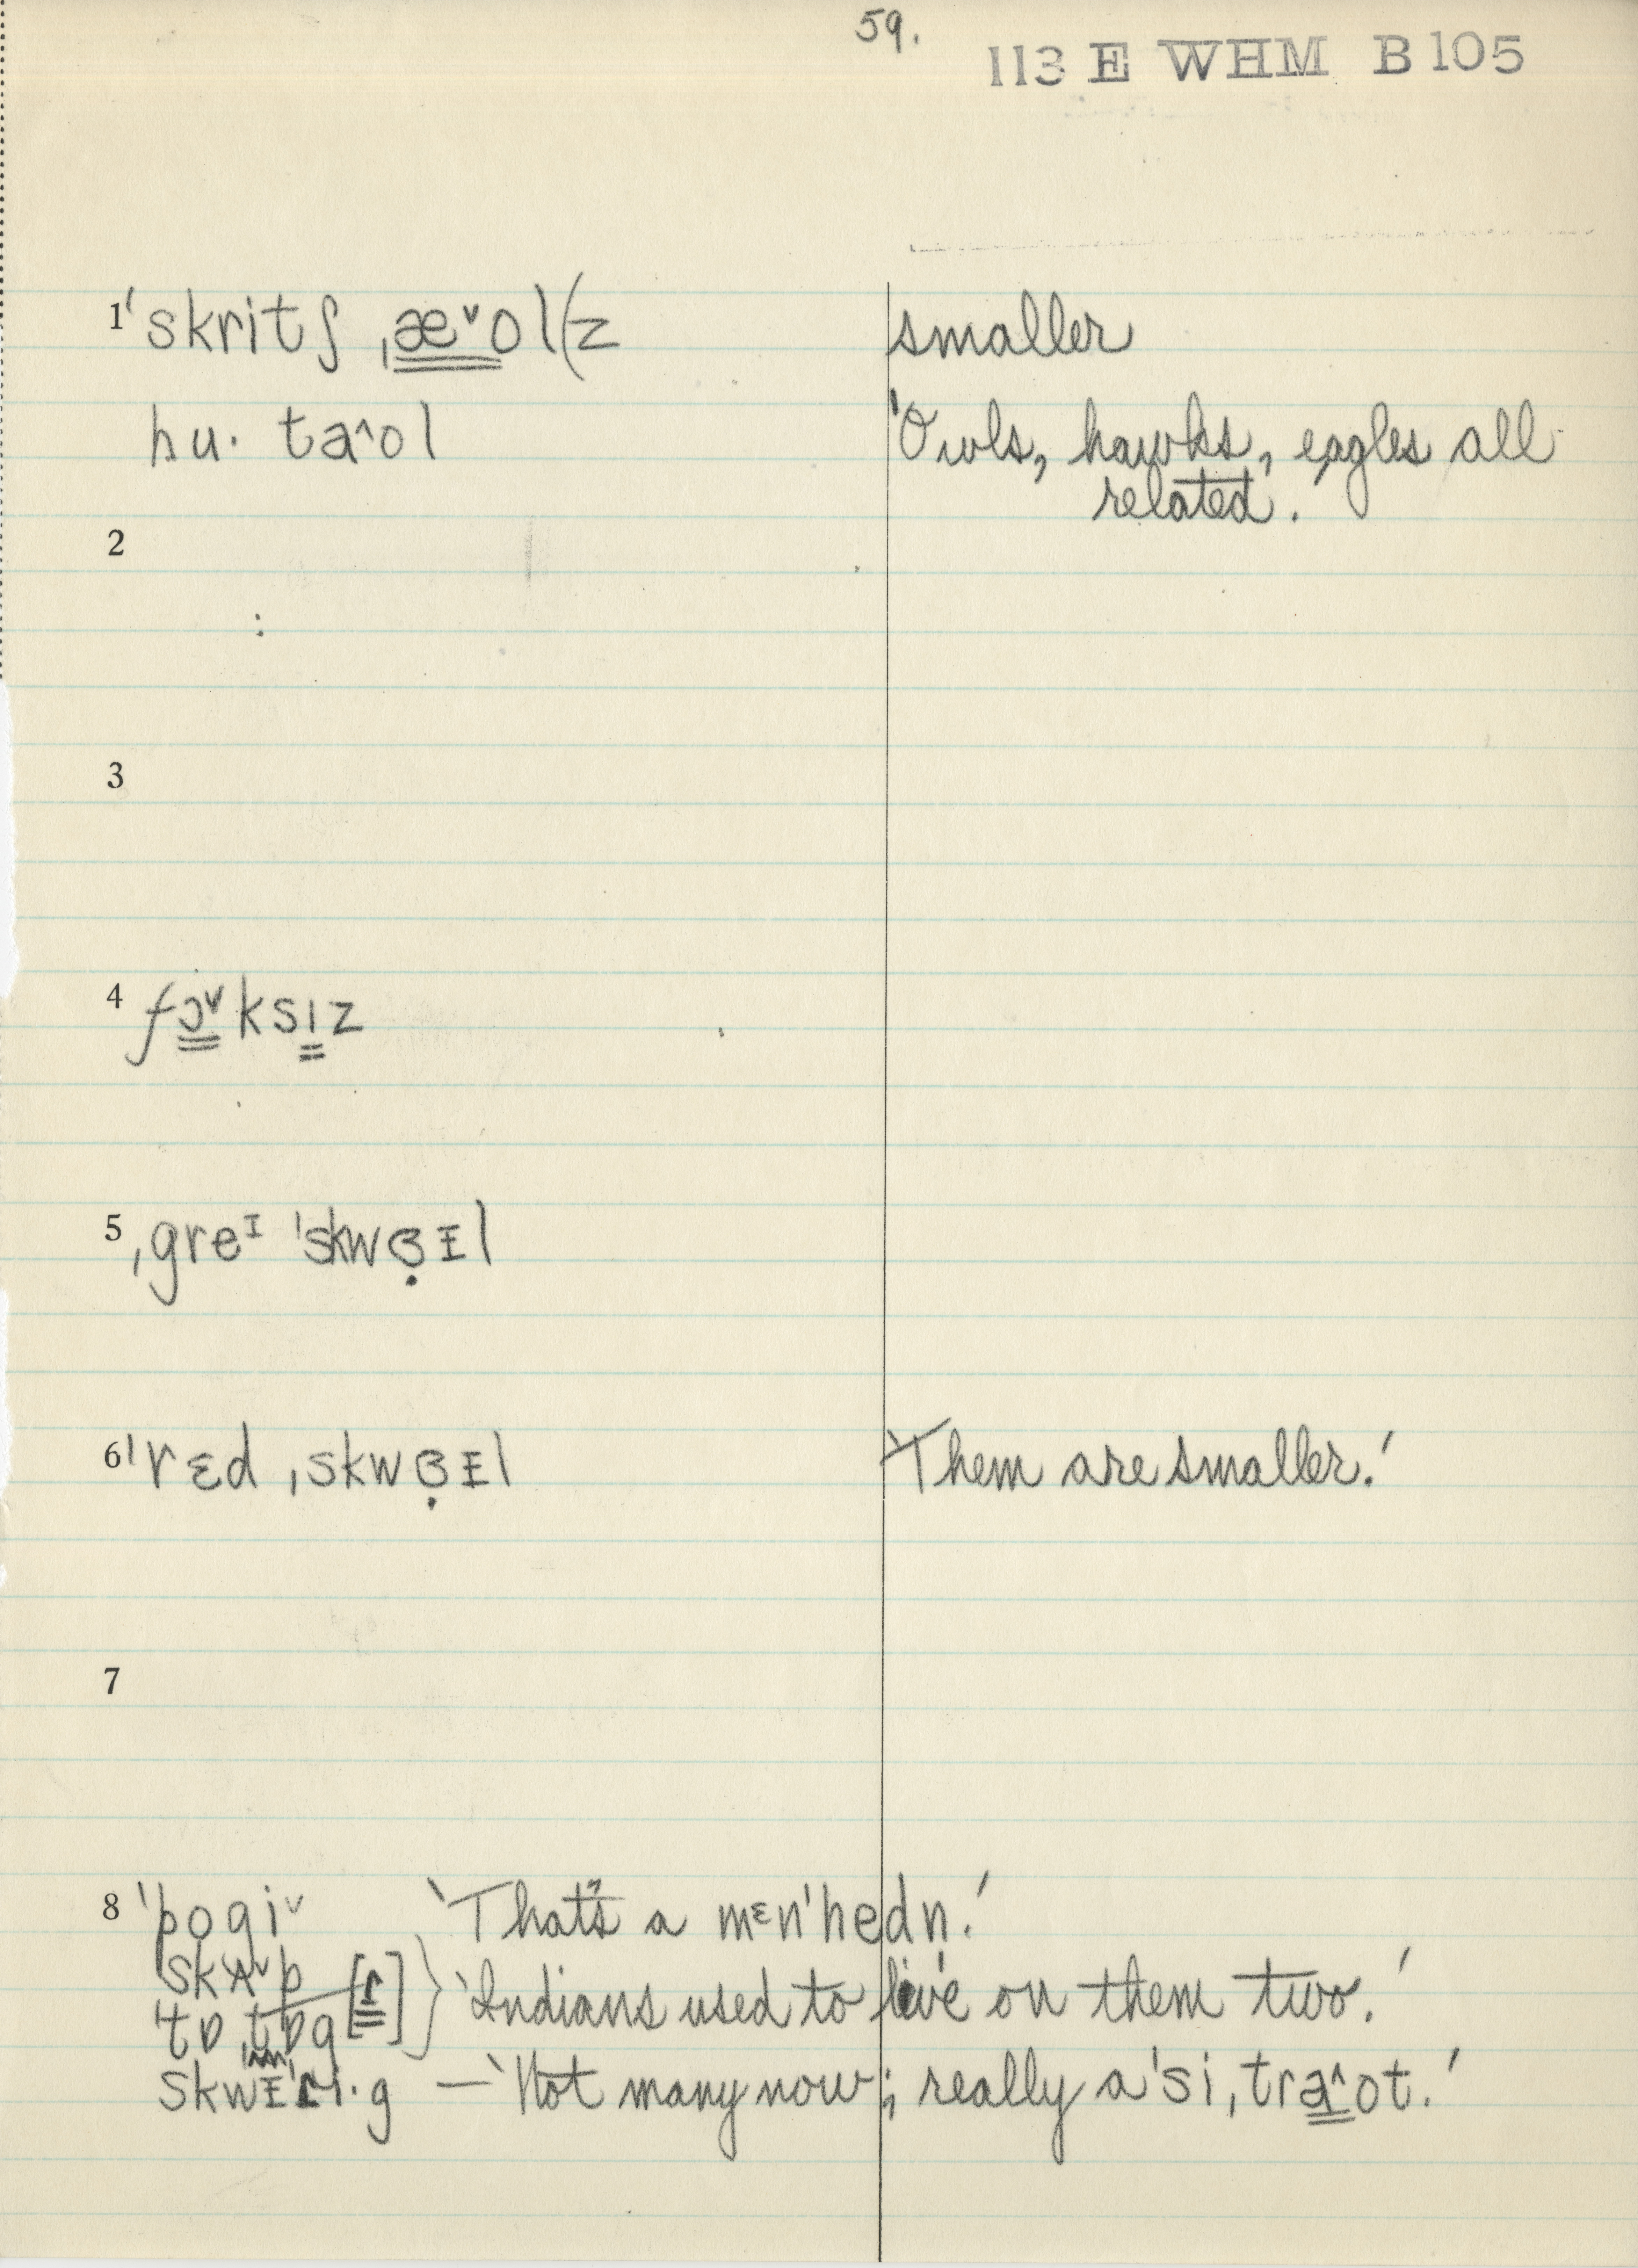 59.
113 E WHM B 105
1 ˈskritʃ ˌæ˅ol(z smaller
hu· ta^ol 'Owls, hawks, eagles all
related.'
2
3
4 fɔ˅ksɪz
5 ˌgreᴵ ˈskwɞ̣ɪl
6 ˈrɛd ˌskwɞ̣ɪl 'Them are smaller.'
7
8 ˈpogi˅ 'That's a mɛnˈhedn.'
skʌ˅p
tɒˌtɒg [ɾ] } 'Indians used to live on them two.'
skwɪˈɾi·g — 'Not many now; really a ˈsiˌtra^ot.'